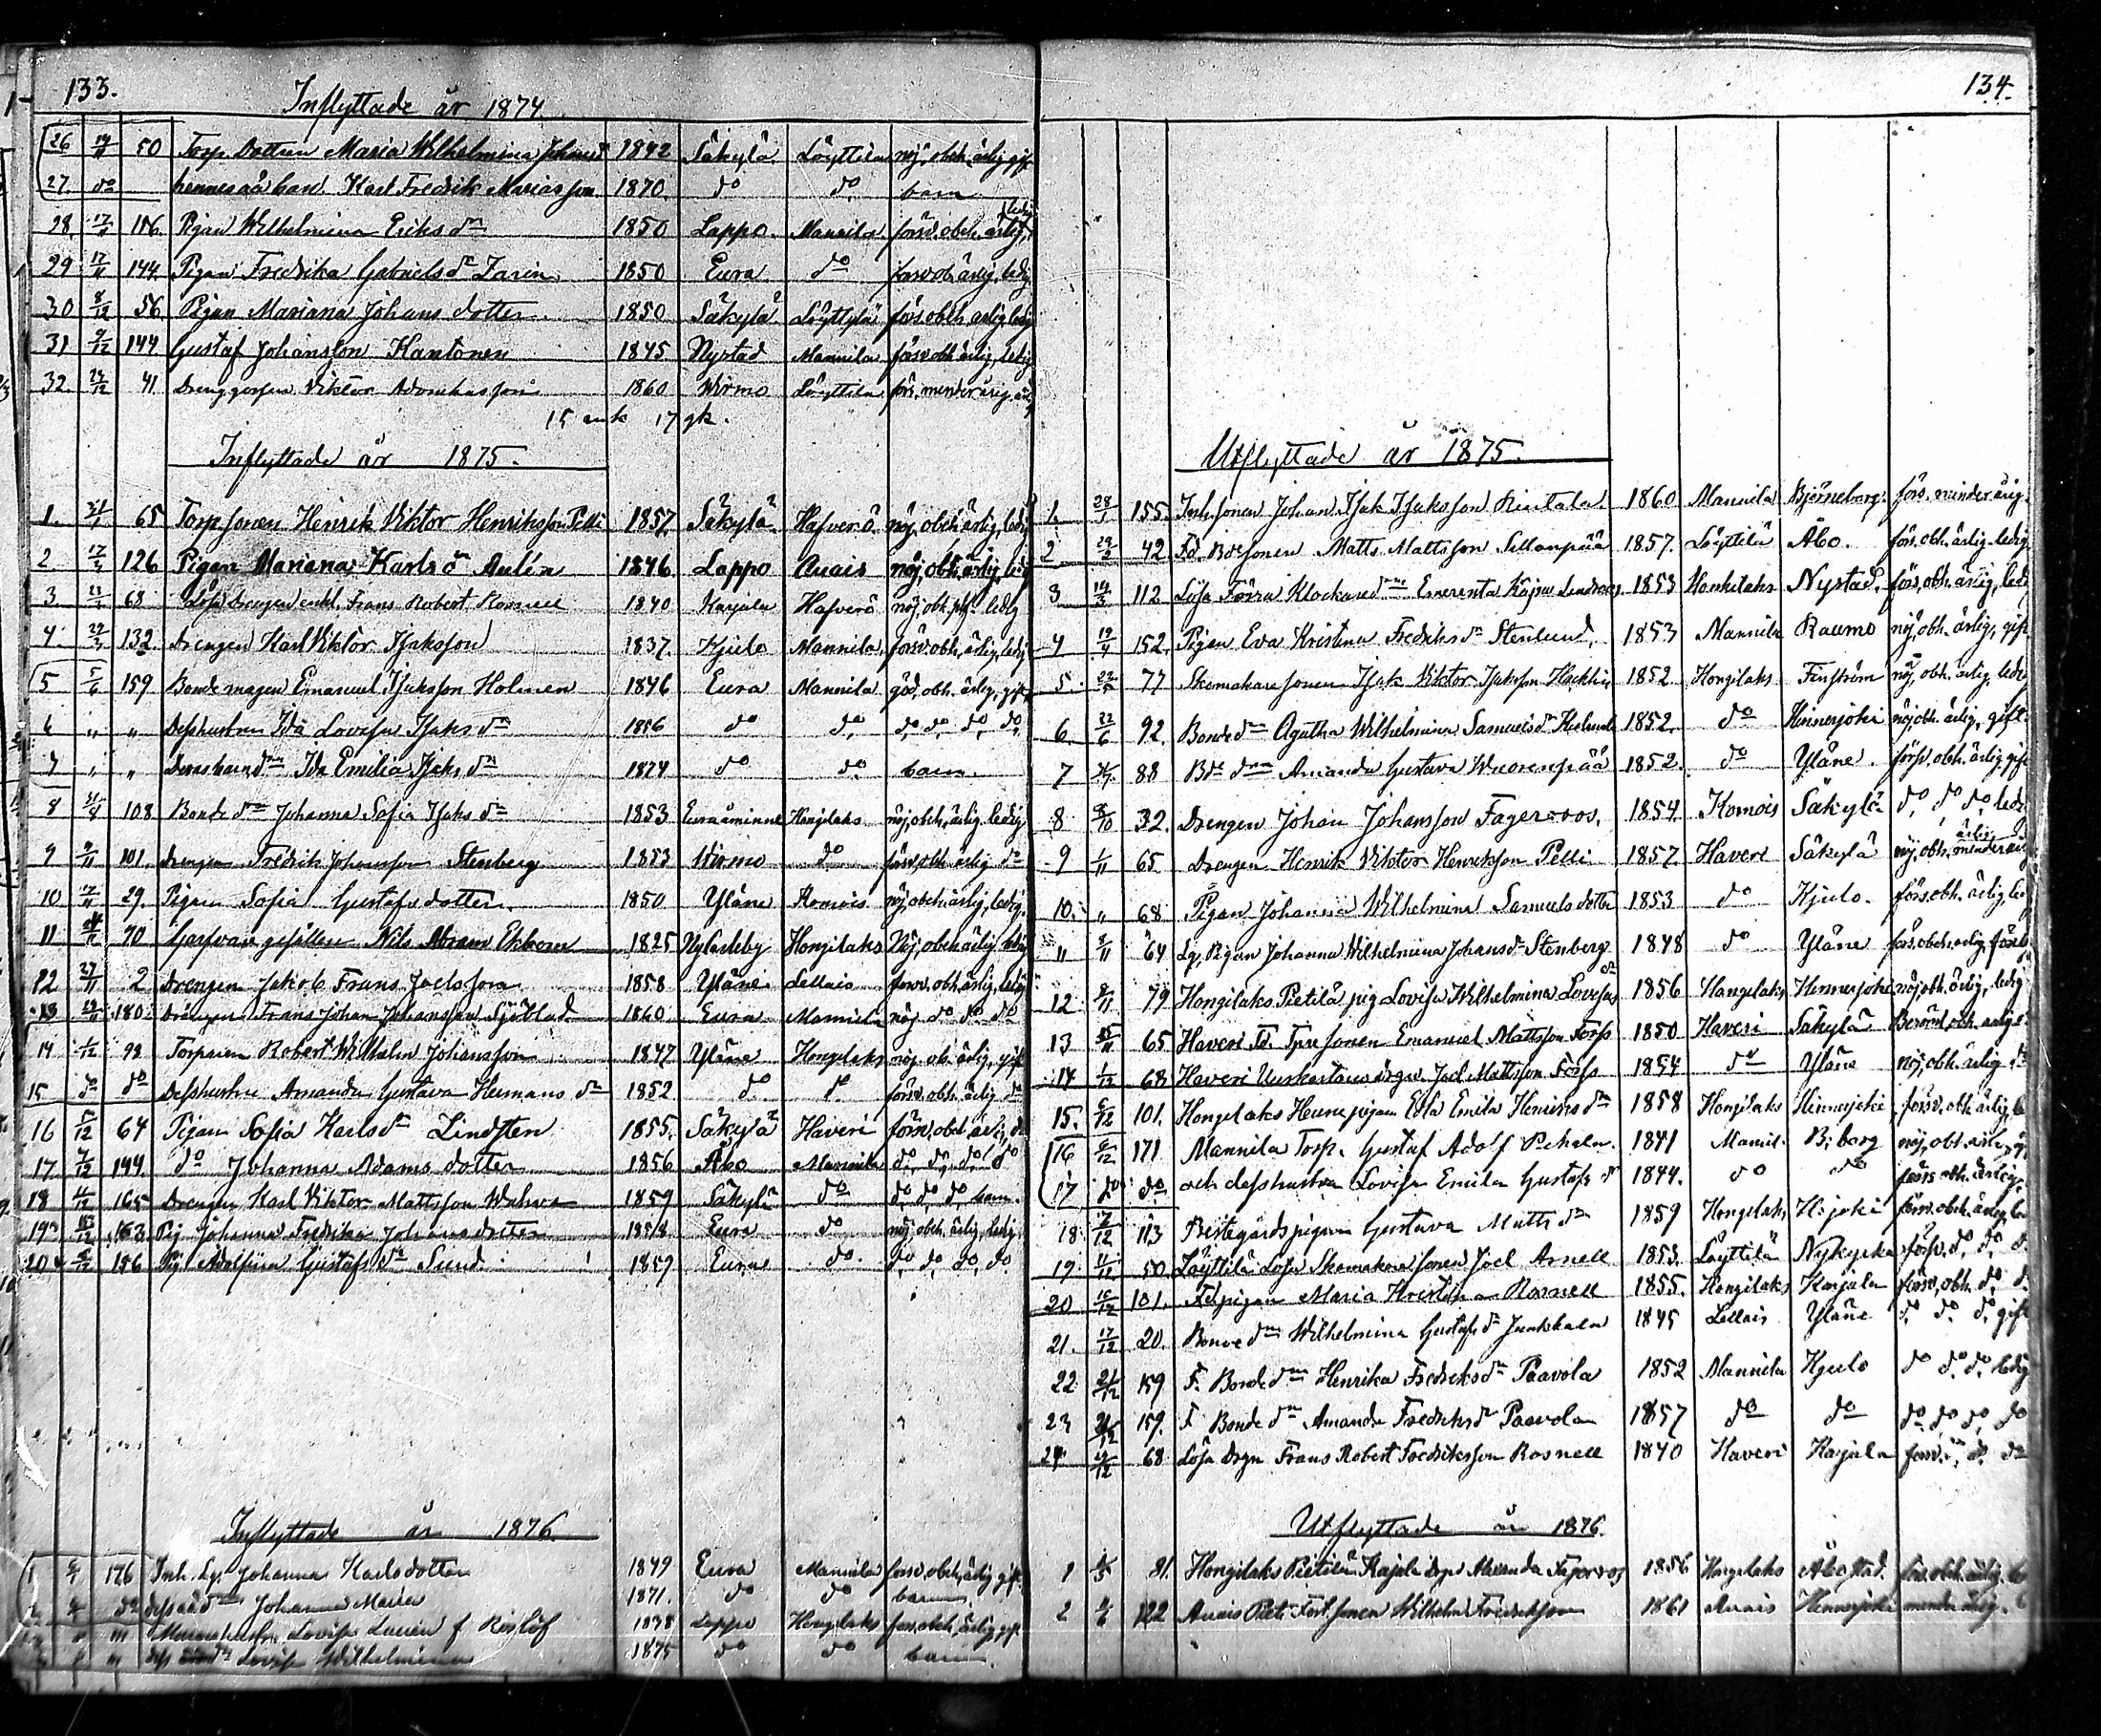 133.
Inflyttade år 1874.
26 19/11 50 Torp. Dottren Maria Wilhelmina 1842 Säkylä Löyttilä nöj, obeh. ärlig gift
27. do hennes oä barn Karl Fredrik Mariasson 1870. do do barn
28. 17/11 186. Pigan Wilhelmina Eriks dr 1850 Lappo. Mannila försv. obeh. ärlig, ledig
29 17/11 144. Pigan Fredrika Gabriels dr Zarin 1850 Eura do försv. obh. ärlig, ledig
30 8/12 56. Pigan Mariana Johans dotter 1850 Säkylä Löyttylä förs. obeh. ärlig ledig
31 9/12 144 Gustaf Johansson Kantonen 1845 Nystad Mannila försv. obh. ärlig, ledig
32. 29/12 41 Viktor 1860 Wirmo Löyttilä förs. minderårig
15 mk 17 qk.
Inflyttade år 1875.
1. 21/1 65 Torp sonen Henrik Viktor Henriksson Pelli 1857 Säkylä Hafverö nöj. obeh. ärlig, ledig
2 17/3 126 Pigan Mariana Karls dr Aulén 1846 Lappo Auais nöj, obh. ärlig, ledig
3. 68 Frans Robert Rosnell 1840 Karjala Hafverö nöj, obh. ledig
4. 132. Drengen Karl Viktor Isaksson 1837. Kjulo Mannila försv. obh. ärlig, ledig
5 5/6 159 Bonde magen Emanuel Isaksson Holmen 1846 Eura Mannila god, obh. ärlig, gift
6 " " Desshustru Ida Lovisa Isaks dr 1856 do do do do do do
7 " " Deras barn Ida Emilia Isaks dr 1874 do do barn.
8 108 Bonde dr Johanna Sofia Isaks dr 1853 Euraåminne Honjilaks nöj, obeh, ärlig ledig
9 9/11 101. Drengen Fredrik Johansson Stenberg 1853 Wirmo do försv. obh. ärlig do
10 17/11 29. Pigan Sofia Gustafs dotter. 1850 Yläne Komois nöj, obeh. ärlig, ledig.
11 70 Garfvare gesällen Nils Abram Ekbom 1825 Nykarleby Honjilaks Nöj, obeh. ärlig
12 27/11 2 Drengen Jakob Frans Joelsson 1858 Yläne Lellais försv. obh. ärlig ledig
13 180. Drengen Frans Johan Johansson Sjöblad 1860 Eura Mannila nöj. do do do
14 1/12 92 Torparen Robert Wilhelm Johansson 1847 Yläne Hongilaks nöj. ob. ärlig, gift
15 do do Desshustru Amanda Gustava Hermans dr 1852 do do försv. obh. ärlig do
16 5/12 64 Pigan Sofia Karls dr Lindsten 1855. Säkylä Haveri försv, obeh. ärlig, do
17. 7/12 144 do Johanna Adams dotter 1856 Åbo Mannila do, do, do, do
18 165 Drengen Karl Viktor Mattsson 1859 Säkylä do do, do, do, barn.
19 163. Pig Johanna Fredrika Johansdotter 1858 Eura do nöj, obeh, ärlig, ledig
20 186 Pig. Adolfina Gustafs dr Sund 1859 Eura do do, do, do, do
Inflyttade år 1876.
1 176 Inh. Johanna Karlsdotter 1849 Eura Mannila försv. obeh, ärlig gift
do Johanna Maria 1871. do do barn.
Lovisa f. Röslöf 1838 Lappo Hongilaks försv. obeh. ärlig, gift
Lovisa Wilhelmina 1875 do do barn.
134.
Utflyttade år 1875.
1. 28/1 155. Inh. sonen Johan Isak Isaksson Rintala. 1860 Mannila Björneborg. försv. minderårig.
2 42 Fd. Bde sonen Matts Mattsson Sillanpää 1857. Löyttilä Åbo. förs. obh. ärlig. ledig
3 14/3 112 Lösa Förra Klockare dr Emerentia Kajsa Lindroos 1853 Honkilaks Nystad. försv, obh. ärlig, ledig
4 19/4 152. Pigan Eva Kristina Fredriks dr Stenlund. 1853 Mannila Raumo nöj, obh. ärlig, gift
5. 77 Skomakare sonen Isak Viktor Isaksson Hacklin 1852 Hongilaks Finström nöj, obh. ärlig. ledig
6. 22/6 92. Bonde dr Agatha Wilhelmina Samuels dr 1852. do Hinnerjoki nöj. obh. ärlig, gift
7 88 Bde dr Amanda Gustava Wuorenpää 1852. do Yläne. försv. obeh. ärlig, gift
8 32. Drengen Johan Johansson Fagerroos. 1854. Komois Säkylä do, do, do, ledig
9 1/11 65 Drengen Henrik Viktor Henriksson Pelli 1857 Haveri Säkylä nöj, obh. ärlig minderårig
10. " 68 Pigan Johanna Wilhelmina Samuels dotter 1853 do Kjulo. förs. obh. ärlig, ledig
11 8/11 64 Lg. Pigan Johanna Wilhelmina Johans dr Stenberg 1848 do Yläne förs. obeh. ärlig,
12 8/11 79 Hongilaks Pietilä pig Lovisa Wilhelmina Lovisas dr 1856 Hongilaks Hinnerjoki nöj, obh. ärlig, ledig
13 65 Haveri Fd. sonen Emanuel Mattsson Forss 1850 Haveri Säkylä Berömd. och. ärlig.
14 1/12 68 Haveri Uuskartano drgn. Joel Mattsson Forss 1854 do Yläne nöj, obh. ärlig do
15. 6/12 101. Hongilaks pigan Edla Emilia Henriks dr 1858 Hongilaks Hinnerjoki försv, obh. ärlig
16 6/12 171 Mannila Torp. Gustaf Adolf 1841 Mannil. B:borg nöj, obh. ärlig,
17 do do och desshustru Lovisa Emilia Gustafs dr 1844. do do förs. obh. ärlig,
18 7/12 113 Prestegårdspigan Gustava Matts dr 1859 Hongilaks H:joki försv. obeh. ärlig,
19. 50 Löyttilä Lösa Skomakare sonen Joel Arnell 1853. Löyttilä Nykyrka försv, do, do, d.
20 101. pigan Maria Kristina Rosnell 1855. Hongilaks Karjala försv, obh. do, d.
21. 17/12 20. Bonde dr Wilhelmina Gustafs dr Junkkala 1845 Lellais Yläne do do do, gift
22 21/12 159 F. Bonde dr Henrika Fredriks dr Paavola 1852 Mannila Kjulo do do do ledig
23 159. F Bonde dr Amanda Fredriks dr Paavola 1857 do do do, do, do, do
24 68 Lösa Drgn Frans Robert Fredriksson Rosnell 1840 Haveri Karjala försv. do do
Utflyttade år 1876.
1 81. Hongilaks Pietilä drgn Alexander Fagerroos 1856 Hongilaks Åbo stad. förs. obeh. ärlig.
2 122 Auais sonen Wilhelm Fredriksson 1861 Auais Hinnerjoki